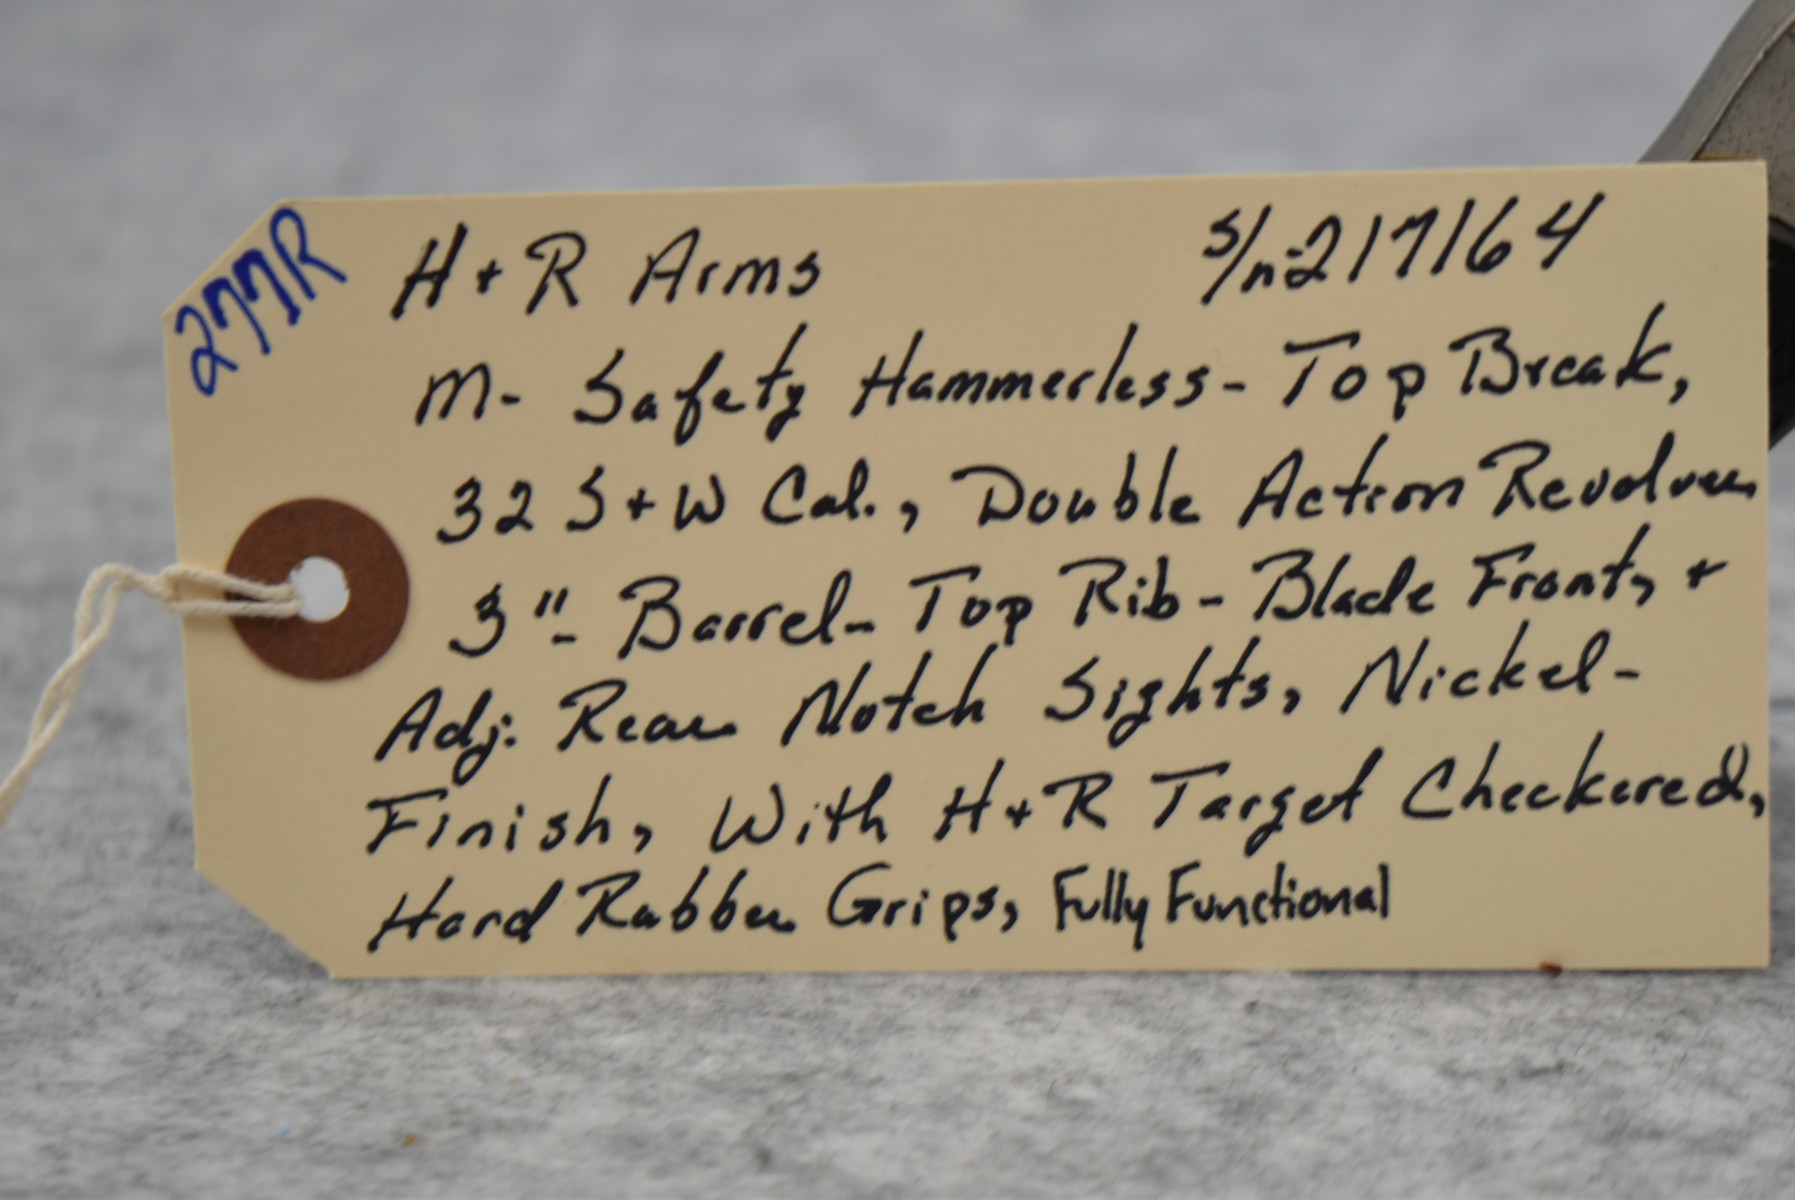 277R
H + R Arms S/n-217164
M- Safety Hammerless- Top Break,
32 S+W Cal., Double Action Revolver
3"- Barrel- Top Rib- Blade Front, +
Adj. Rear Notch Sights, Nickel-
Finish, With H+R Target Checkered,
Hard Rubber Grips, Fully Functional